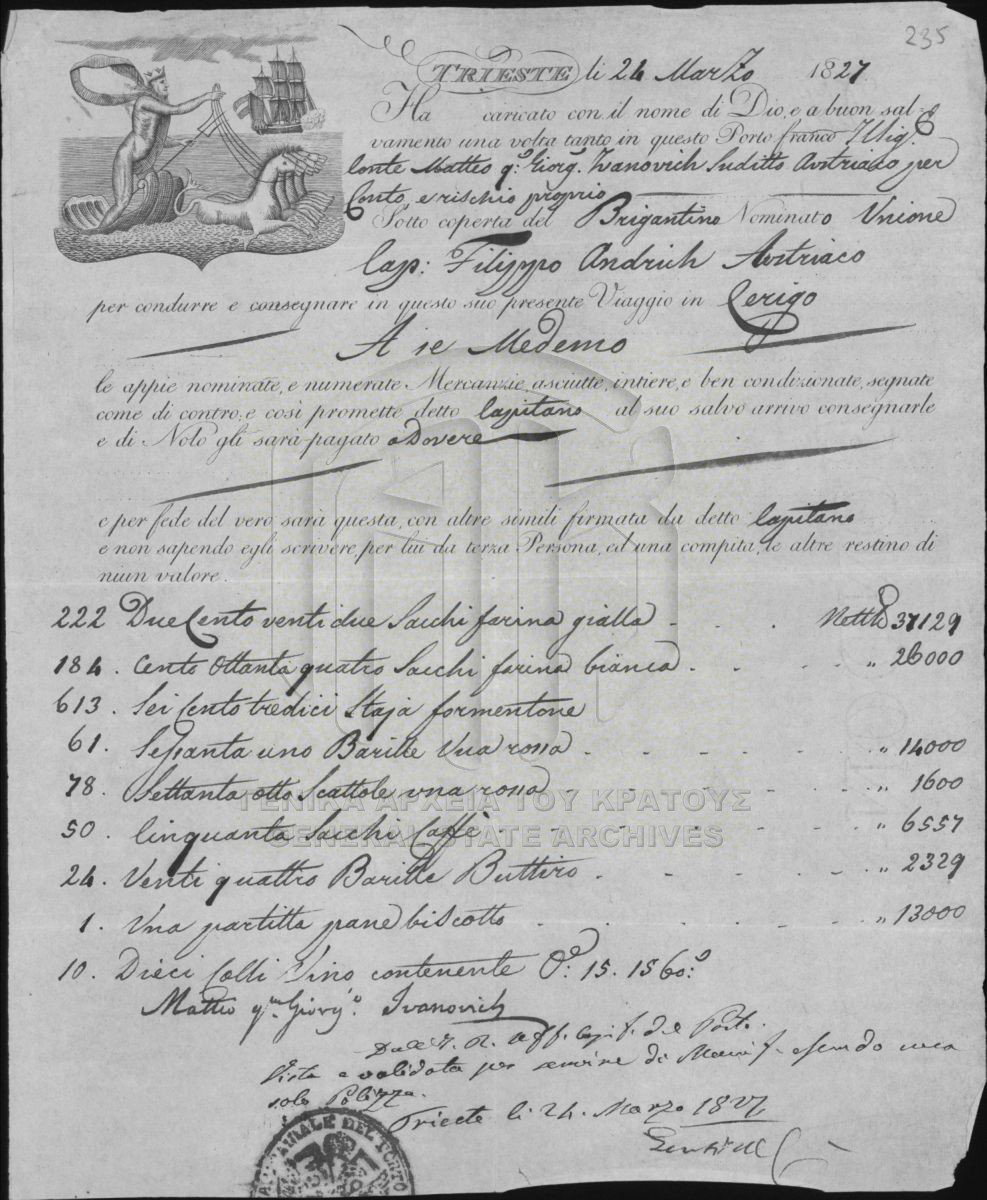 235
TRIESTE li 24 Marzo 1827
Ha caricato con il nome di Dio, e a buon sal-
vamento una volta tanto in questo Porto franco Il Sigr
Conte Matteo qm Giorg. Ivanovich Suditto Avstriaco per
Conto, e rischio proprio
Sotto coperta del Brigantino Nominato Unione
Cap: Filippo Andrich Avstriaco
per condurre e consegnare in questo suo presente Viaggio in Cerigo
A se Medemo
le appie nominate, e numerate Mercanzie, asciutte, intiere, e ben condizionate, segnate
come di contro; e così promette detto Capitano al suo salvo arrivo consegnarle
e di Nolo gli sarà pagato a Dovere
e per fede del vero sarà questa, con altre simili firmata da detto Capitano
e non sapendo egli scrivere, per lui da terza Persona, ed una compita, le altre restino di
niun valore.
222 Due Cento venti due Sacchi farina gialla - - . Nette 37129
184 . Cento Ottanta quatro Sacchi farina bianca . - . - . „ 26000
613 . Sei Cento tredici Staja formentone
61 . Sessanta uno Barille Uva rossa . - - - - . „ 14000
78 . Settanta otto Scattole uva rossa . „ 1600
50 . Cinquanta Sacchi Caffè - - - - - . „ 6557
24 . Venti quattro Barille Buttiro . - - - - . „ 2329
1 . Una partitta pane biscotto . - - - . „ 13000
10 . Dieci Colli Vino contenente O: 15. 1560:
Matteo qm Giorgo Ivanovich
Dall'I. R. Uff. Capit. del Porto.
Vista e validata per servire di Manif. essendo unica
sola Polizza.
Trieste li 24. Marzo 1827
DEL PORTO
ΓΕΝΙΚΑ ΑΡΧΕΙΑ ΤΟΥ ΚΡΑΤΟΥΣ
GENERAL STATE ARCHIVES